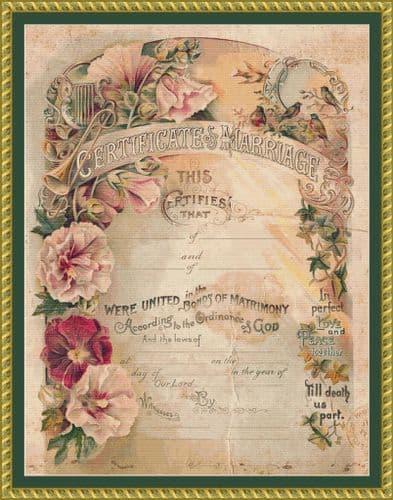 CERTIFICATE OF MARRIAGE
THIS
CERTIFIES
THAT
of
and
of
WERE UNITED in the BONDS OF MATRIMONY
According to the Ordinance of GOD
And the laws of
at on the
day of in the year of
Our Lord
Witnesses By
In
perfect
Love
and
PEACE
together
Till death
us
part.